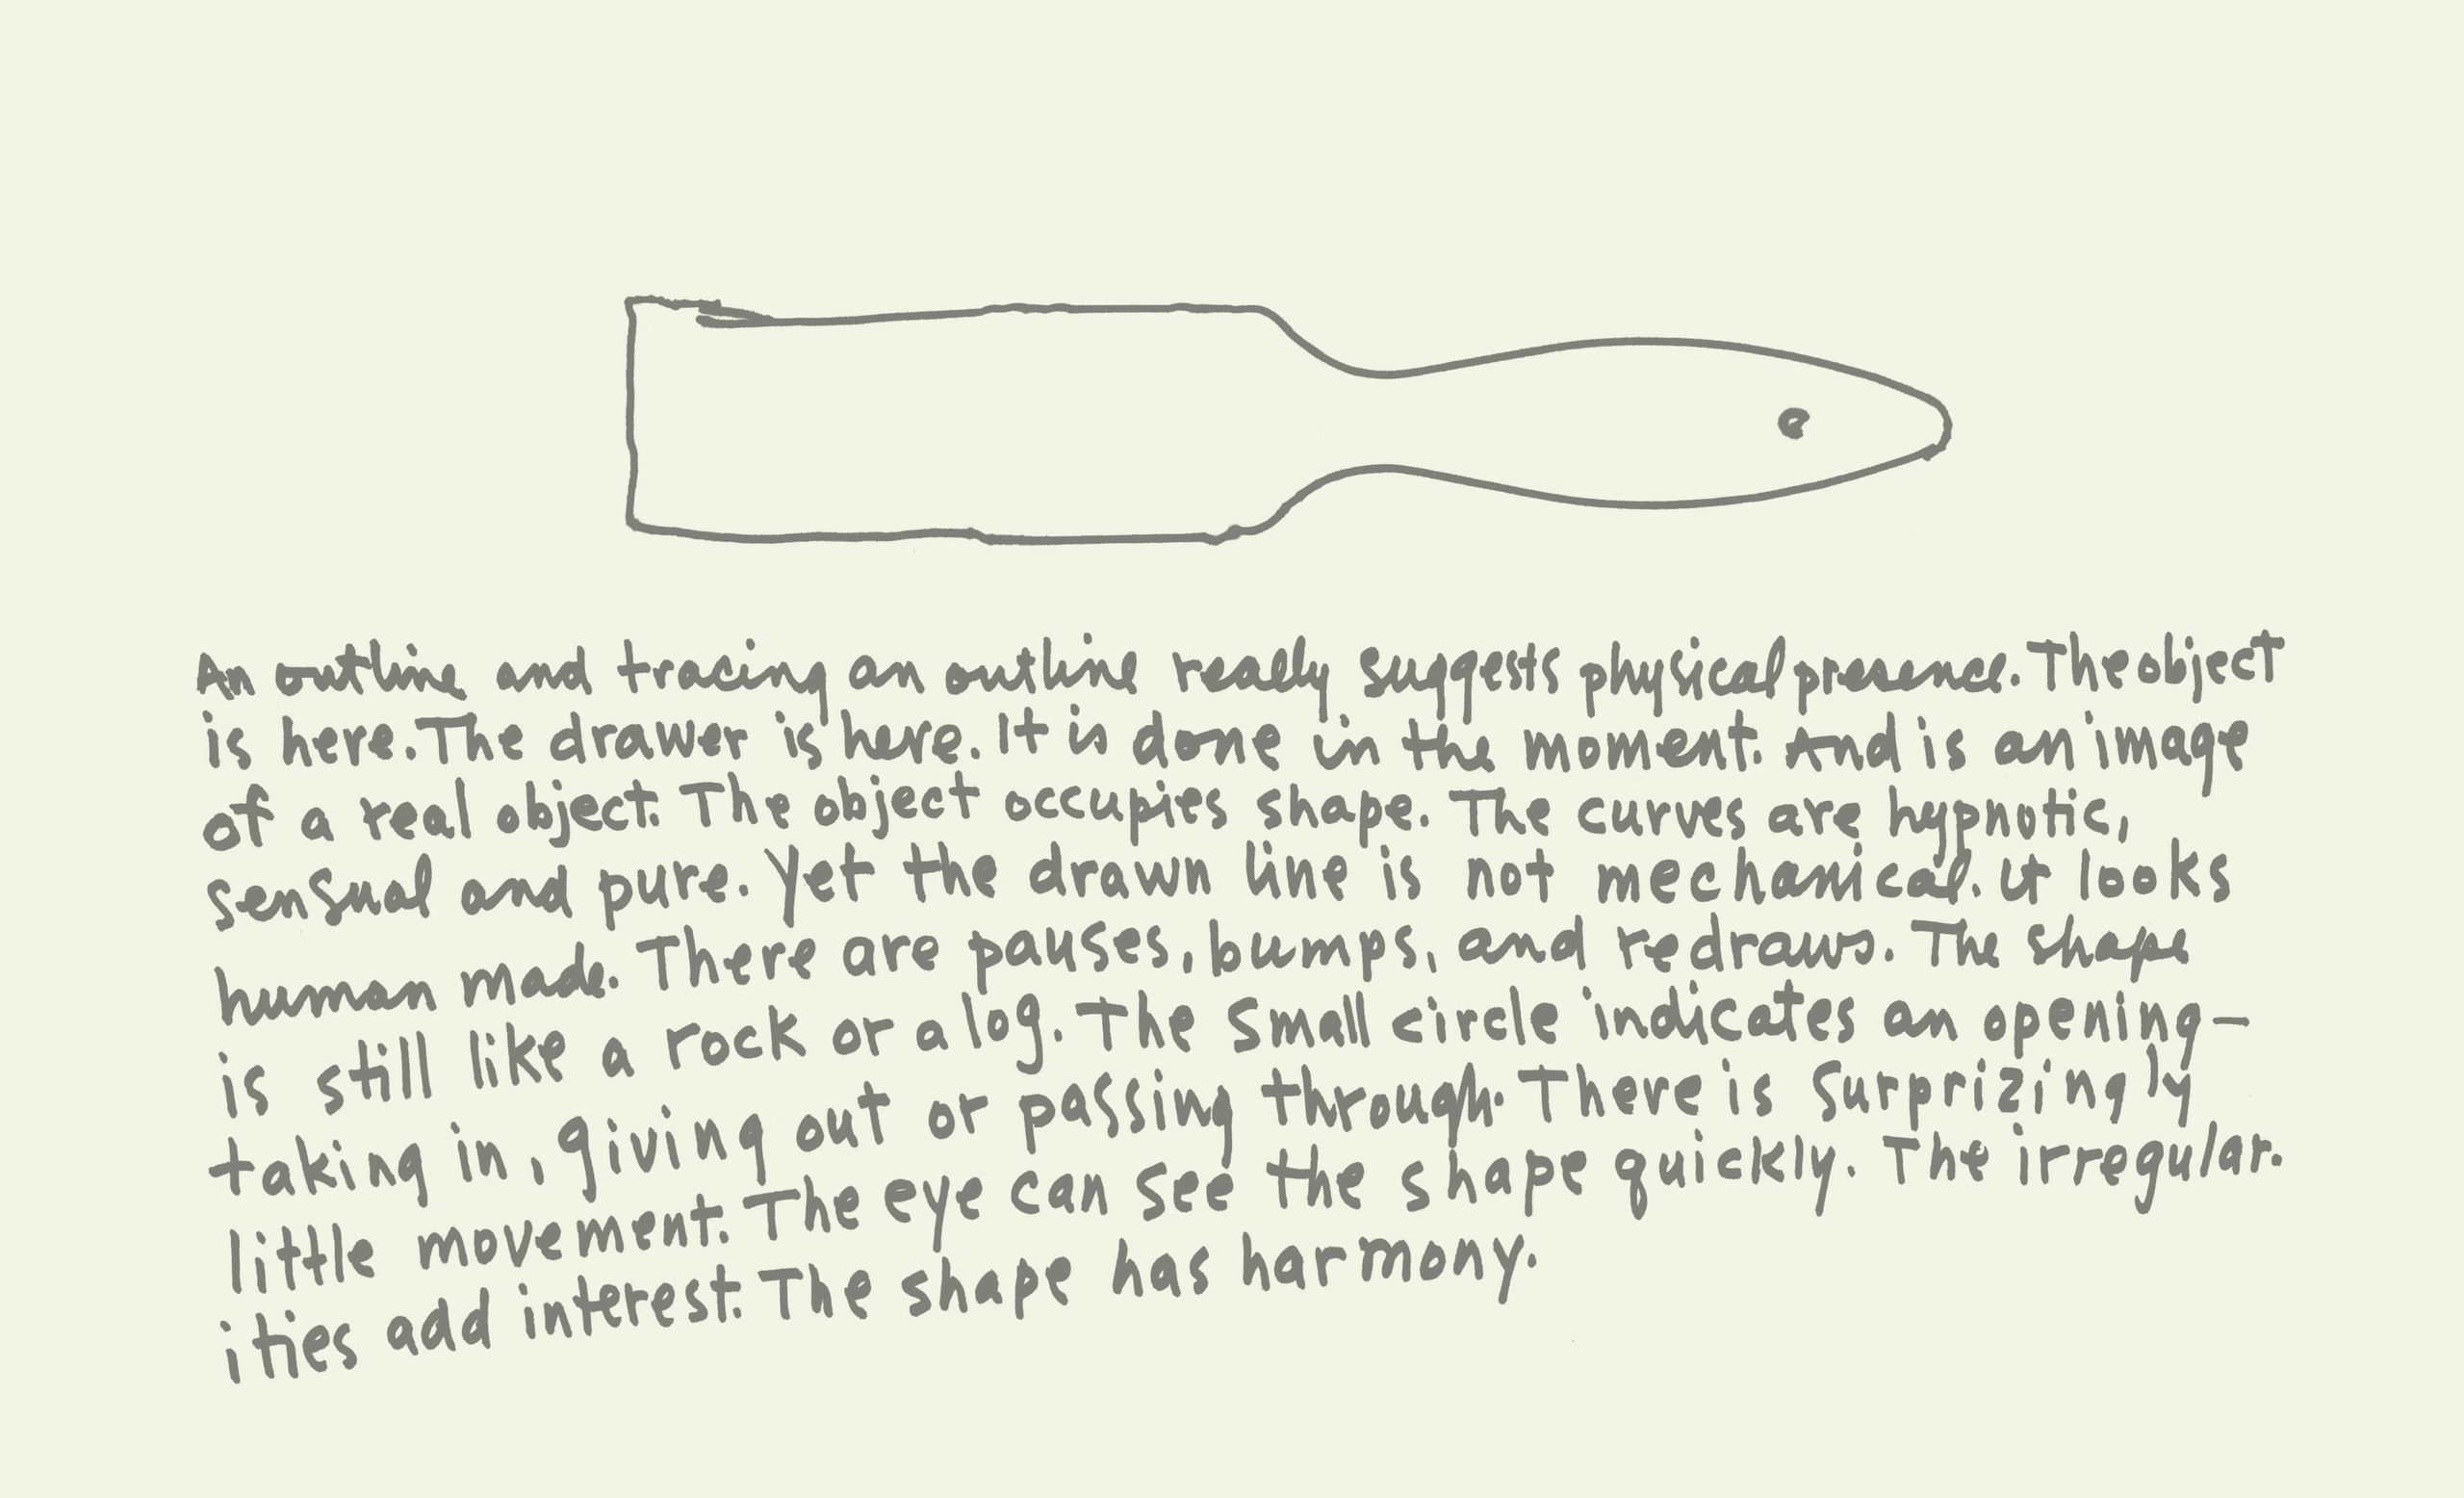 An outline and tracing an outline really suggests physical presence. The object
is here. The drawer is here. It is done in the moment. And is an image
of a real object. The object occupies shape. The curves are hypnotic,
sensual and pure. Yet the drawn line is not mechanical. it looks
human made. There are pauses, bumps, and redraws. The shape
is still like a rock or a log. The small circle indicates an opening—
taking in, giving out or passing through. There is surprizingly
little movement. The eye can see the shape quickly. The irregular.
ities add interest. The shape has harmony.